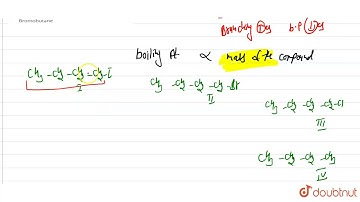 Bromobutane
b.p
boiling Pt ∝ mass of the compound
CH₃ -CH₂ -CH₂ -CH₂-I
I
CH₃ -CH₂ -CH₂ -CH₂-Br
II
CH₃ -CH₂ -CH₂ -CH₂-Cl
III
CH₃ -CH₂ -CH₂ -CH₃
IV
doubtnut